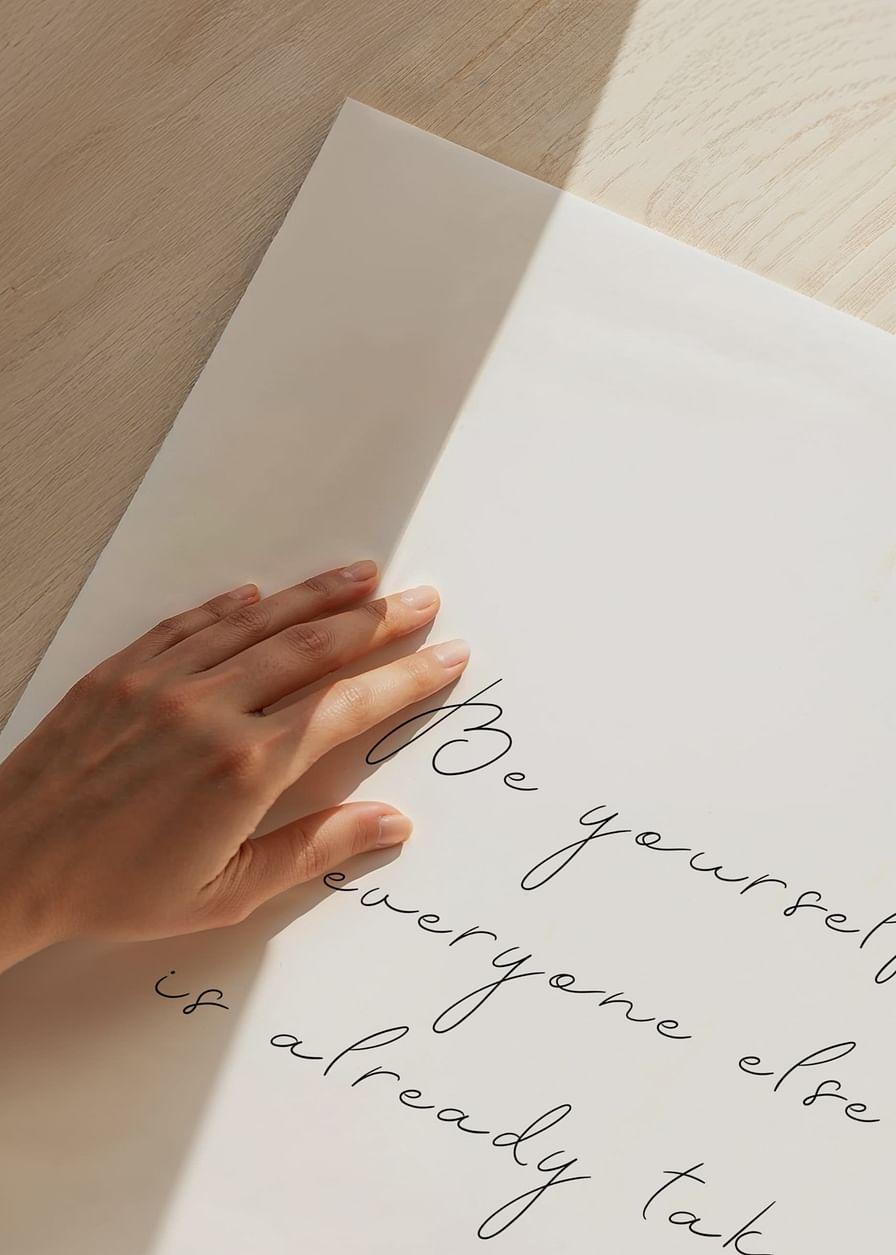 Be yourself
everyone else
is already tak